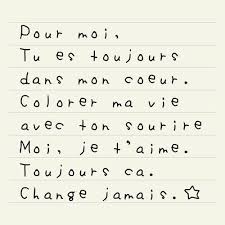 Pour moi,
Tu es toujours
dans mon coeur.
Colorer ma vie
avec ton sourire
Moi, je t'aime.
Toujours ca.
Change jamais.☆